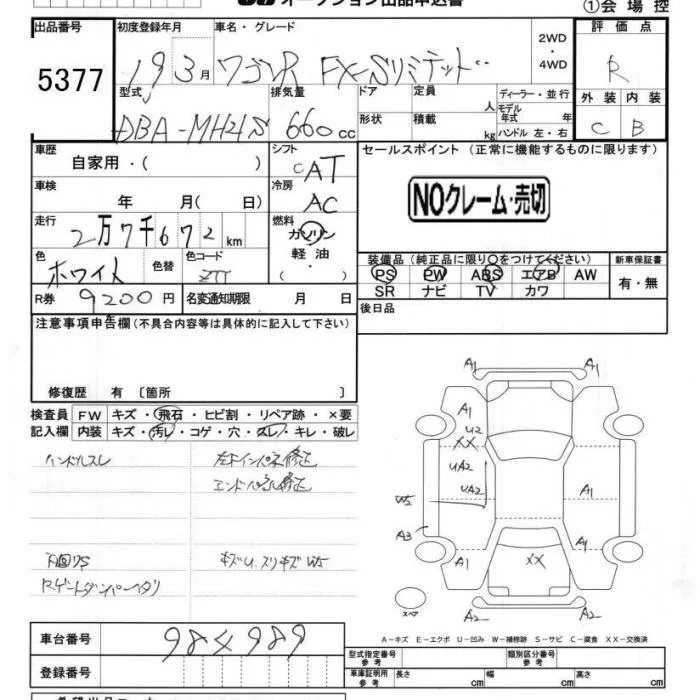 オークション出品申込書
①会場控
出品番号 初度登録年月 車名・グレード 2WD・4WD 評価点
5377 19 3月 ワゴンR FX-Sリミテッド R
型式 排気量 ドア 定員 人 ディーラー・並行 外装 内装
DBA-MH21S 660cc 形状 積載 kg モデル年式 年 ハンドル 左・右 C B
車歴 シフト セールスポイント (正常に機能するものに限ります)
自家用・( ) CAT
NOクレーム・売切
車検 冷房
年 月( 日) AC
走行 燃料
2万7千672km ガソリン
軽油
・( )
色 色替 色コード
ホワイト
装備品 (純正品に限り〇をつけてください) 新車保証書
PS PW ABS エアB AW 有・無
SR ナビ TV カワ
R券 9200円 名変通知期限 月 日
後日品
注意事項申告欄 (不具合内容等は具体的に記入して下さい)
修復歴 有 〔箇所 〕
検査員 FW キズ・飛石・ヒビ割・リペア跡・×要
記入欄 内装 キズ・汚レ・コゲ・穴・スレ・キレ・破レ
ハンドルスレ 左Fインパネ修正
エンドパネル修正
下回りS キズU.スリキズW5
Rゲートダンパーヘタリ
A1 A1
A1
U2
XX
UA2
UA2
W5
A1
A3
A1 A1
XX
スペア
A2 A2
A-キズ E-エクボ U-凹み W-補修跡 S-サビ C-腐食 XX-交換済
車台番号 984989
登録番号
型式指定番号 参考 類別区分番号 参考
車庫証明用 参考 長さ cm 幅 cm 高さ cm